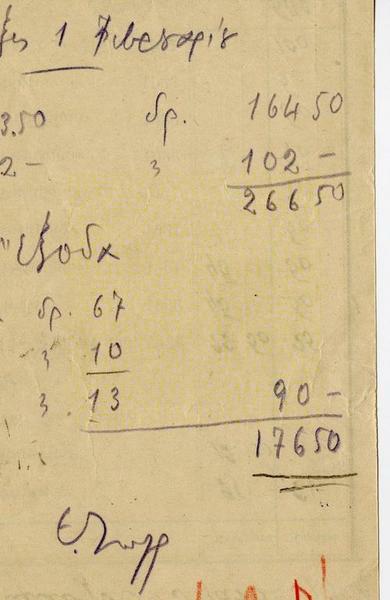 1 Φεβουαρίου
3.50 δρ. 164 50
2 — " 102 —
266 50
Έξοδα
δρ. 67
" 10
" 13 90 —
176 50